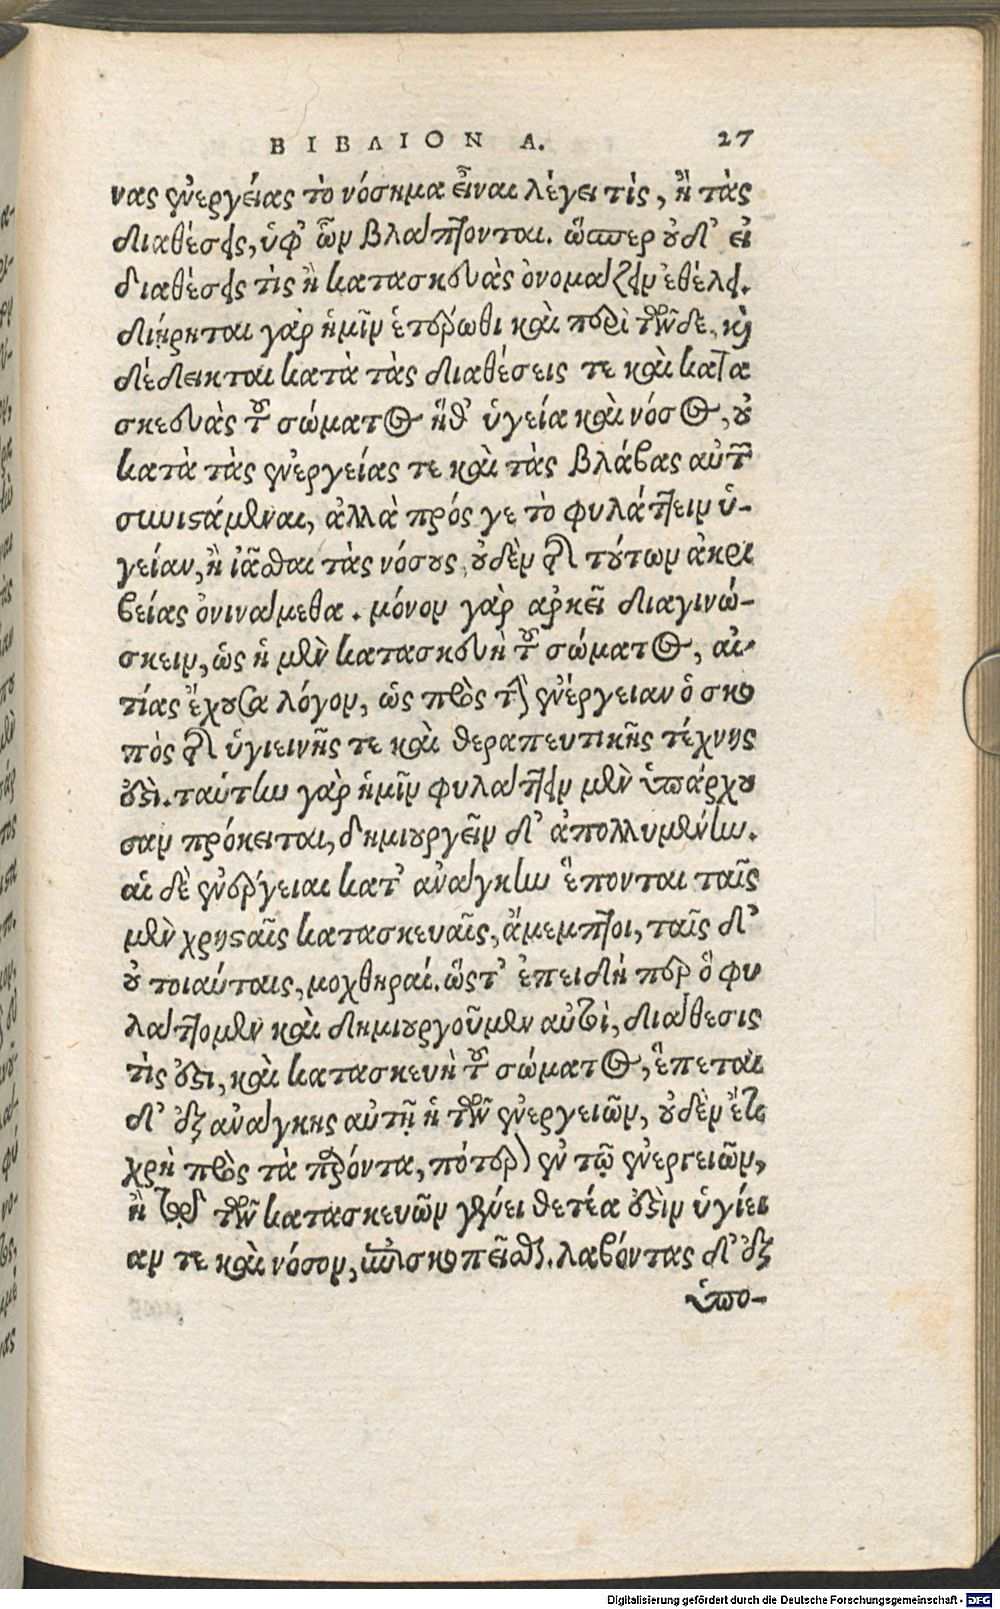 ΒΙΒΛΙΟΝ Α. 27
νας ἐνεργείας τὸ νόσημα εἶναι λέγει τὶς, ἢ τὰς
διαθέσεις, ὑφ᾽ ὧν βλάπτονται. ὥσπερ οὐδ᾽ εἰ
διαθέσεις τὶς ἢ κατασκευὰς ὀνομάζειν ἐθέλει.
διῄρηται γὰρ ἡμῖν ἑτέρωθι καὶ περὶ τῶνδε, καὶ
δέδεικται κατὰ τὰς διαθέσεις τε καὶ κατα
σκευὰς τοῦ σώματος ἥθ᾽ ὑγεία καὶ νόσος, οὐ
κατὰ τὰς ἐνεργείας τε καὶ τὰς βλάβας αὐτῶν
συνιστάμεναι, ἀλλὰ πρός γε τὸ φυλάττειν ὑ-
γείαν, ἢ ἰᾶσθαι τὰς νόσους, οὐδὲν ἐκ τούτων ἀκρι
βείας ὀνινάμεθα. μόνον γὰρ ἀρκεῖ διαγινώ-
σκειν, ὡς ἡ μὲν κατασκευὴ τοῦ σώματος, αἰ
τίας ἔχουσα λόγον, ὡς πρὸς τὴν ἐνέργειαν ὁ σκο
πὸς τῆς ὑγιεινῆς τε καὶ θεραπευτικῆς τέχνης
ἐστὶ. ταύτην γὰρ ἡμῖν φυλάττειν μὲν ὑπάρχου
σαν πρόκειται, δημιουργεῖν δ᾽ ἀπολλυμένην.
αἱ δὲ ἐνέργειαι κατ᾽ ἀνάγκην ἕπονται ταῖς
μὲν χρησταῖς κατασκευαῖς, ἄμεμπτοι, ταῖς δ᾽
οὐ τοιαύταις, μοχθηραί. ὥστ᾽ ἐπειδήπερ ὃ φυ
λάττομεν καὶ δημιουργοῦμεν αὐτοὶ, διάθεσις
τὶς ἐστι, καὶ κατασκευὴ τοῦ σώματος, ἕπεται
δ᾽ ἐξ ἀνάγκης αὐτῇ ἡ τῶν ἐνεργειῶν, οὐδὲν ἔτι
χρὴ πρὸς τὰ παρόντα, πότερον ἐν τῷ ἐνεργειῶν,
ἢ τῷ τῶν κατασκευῶν γένει θετέα ἐστὶν ὑγίει
αν τε καὶ νόσον, ἐπισκοπεῖσθαι. λαβόντας δ᾽ ἐξ
ὑπο-
Digitalisierung gefördert durch die Deutsche Forschungsgemeinschaft - DFG